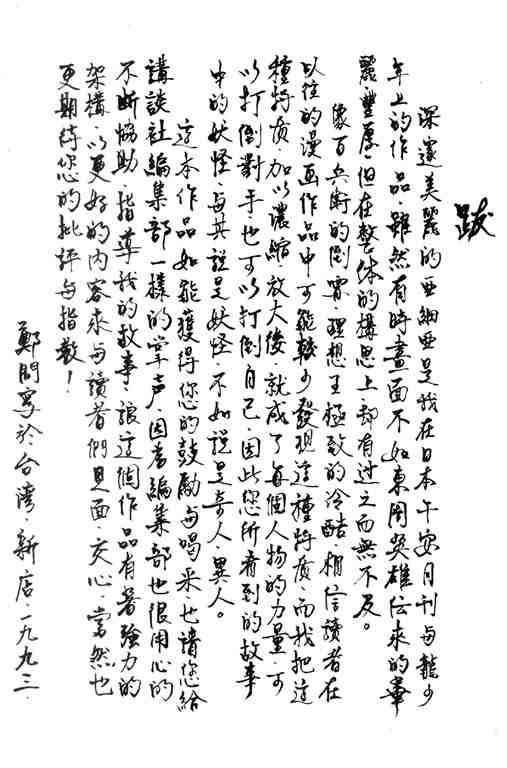 跋
深邃美麗的亞細亞是我在日本午安月刊与龍少
年上的作品。雖然有時畫面不如東周英雄伝來的華
麗豐厚，但在整体的構思上，却有过之而無不及。
像百兵衛的倒胃，理想王極致的冷酷，相信讀者在
以往的漫画作品中可能較少發現這種特质，而我把這
種特质加以濃縮，放大後，就成了每個人物的力量，可
以打倒對手也可以打倒自己，因此您所看到的故事
中的妖怪，与其說是妖怪，不如說是奇人、異人。
這本作品如能獲得您的鼓勵与喝采也請您給
講談社編集部一樣的掌声，因為編集部也很用心的
不断協助、指導我的故事，讓這個作品有著強力的
架構，以更好的內容來与讀者們見面、交心，當然也
更期待您的批評与指教！
鄭問寫於台灣・新店・一九九三・